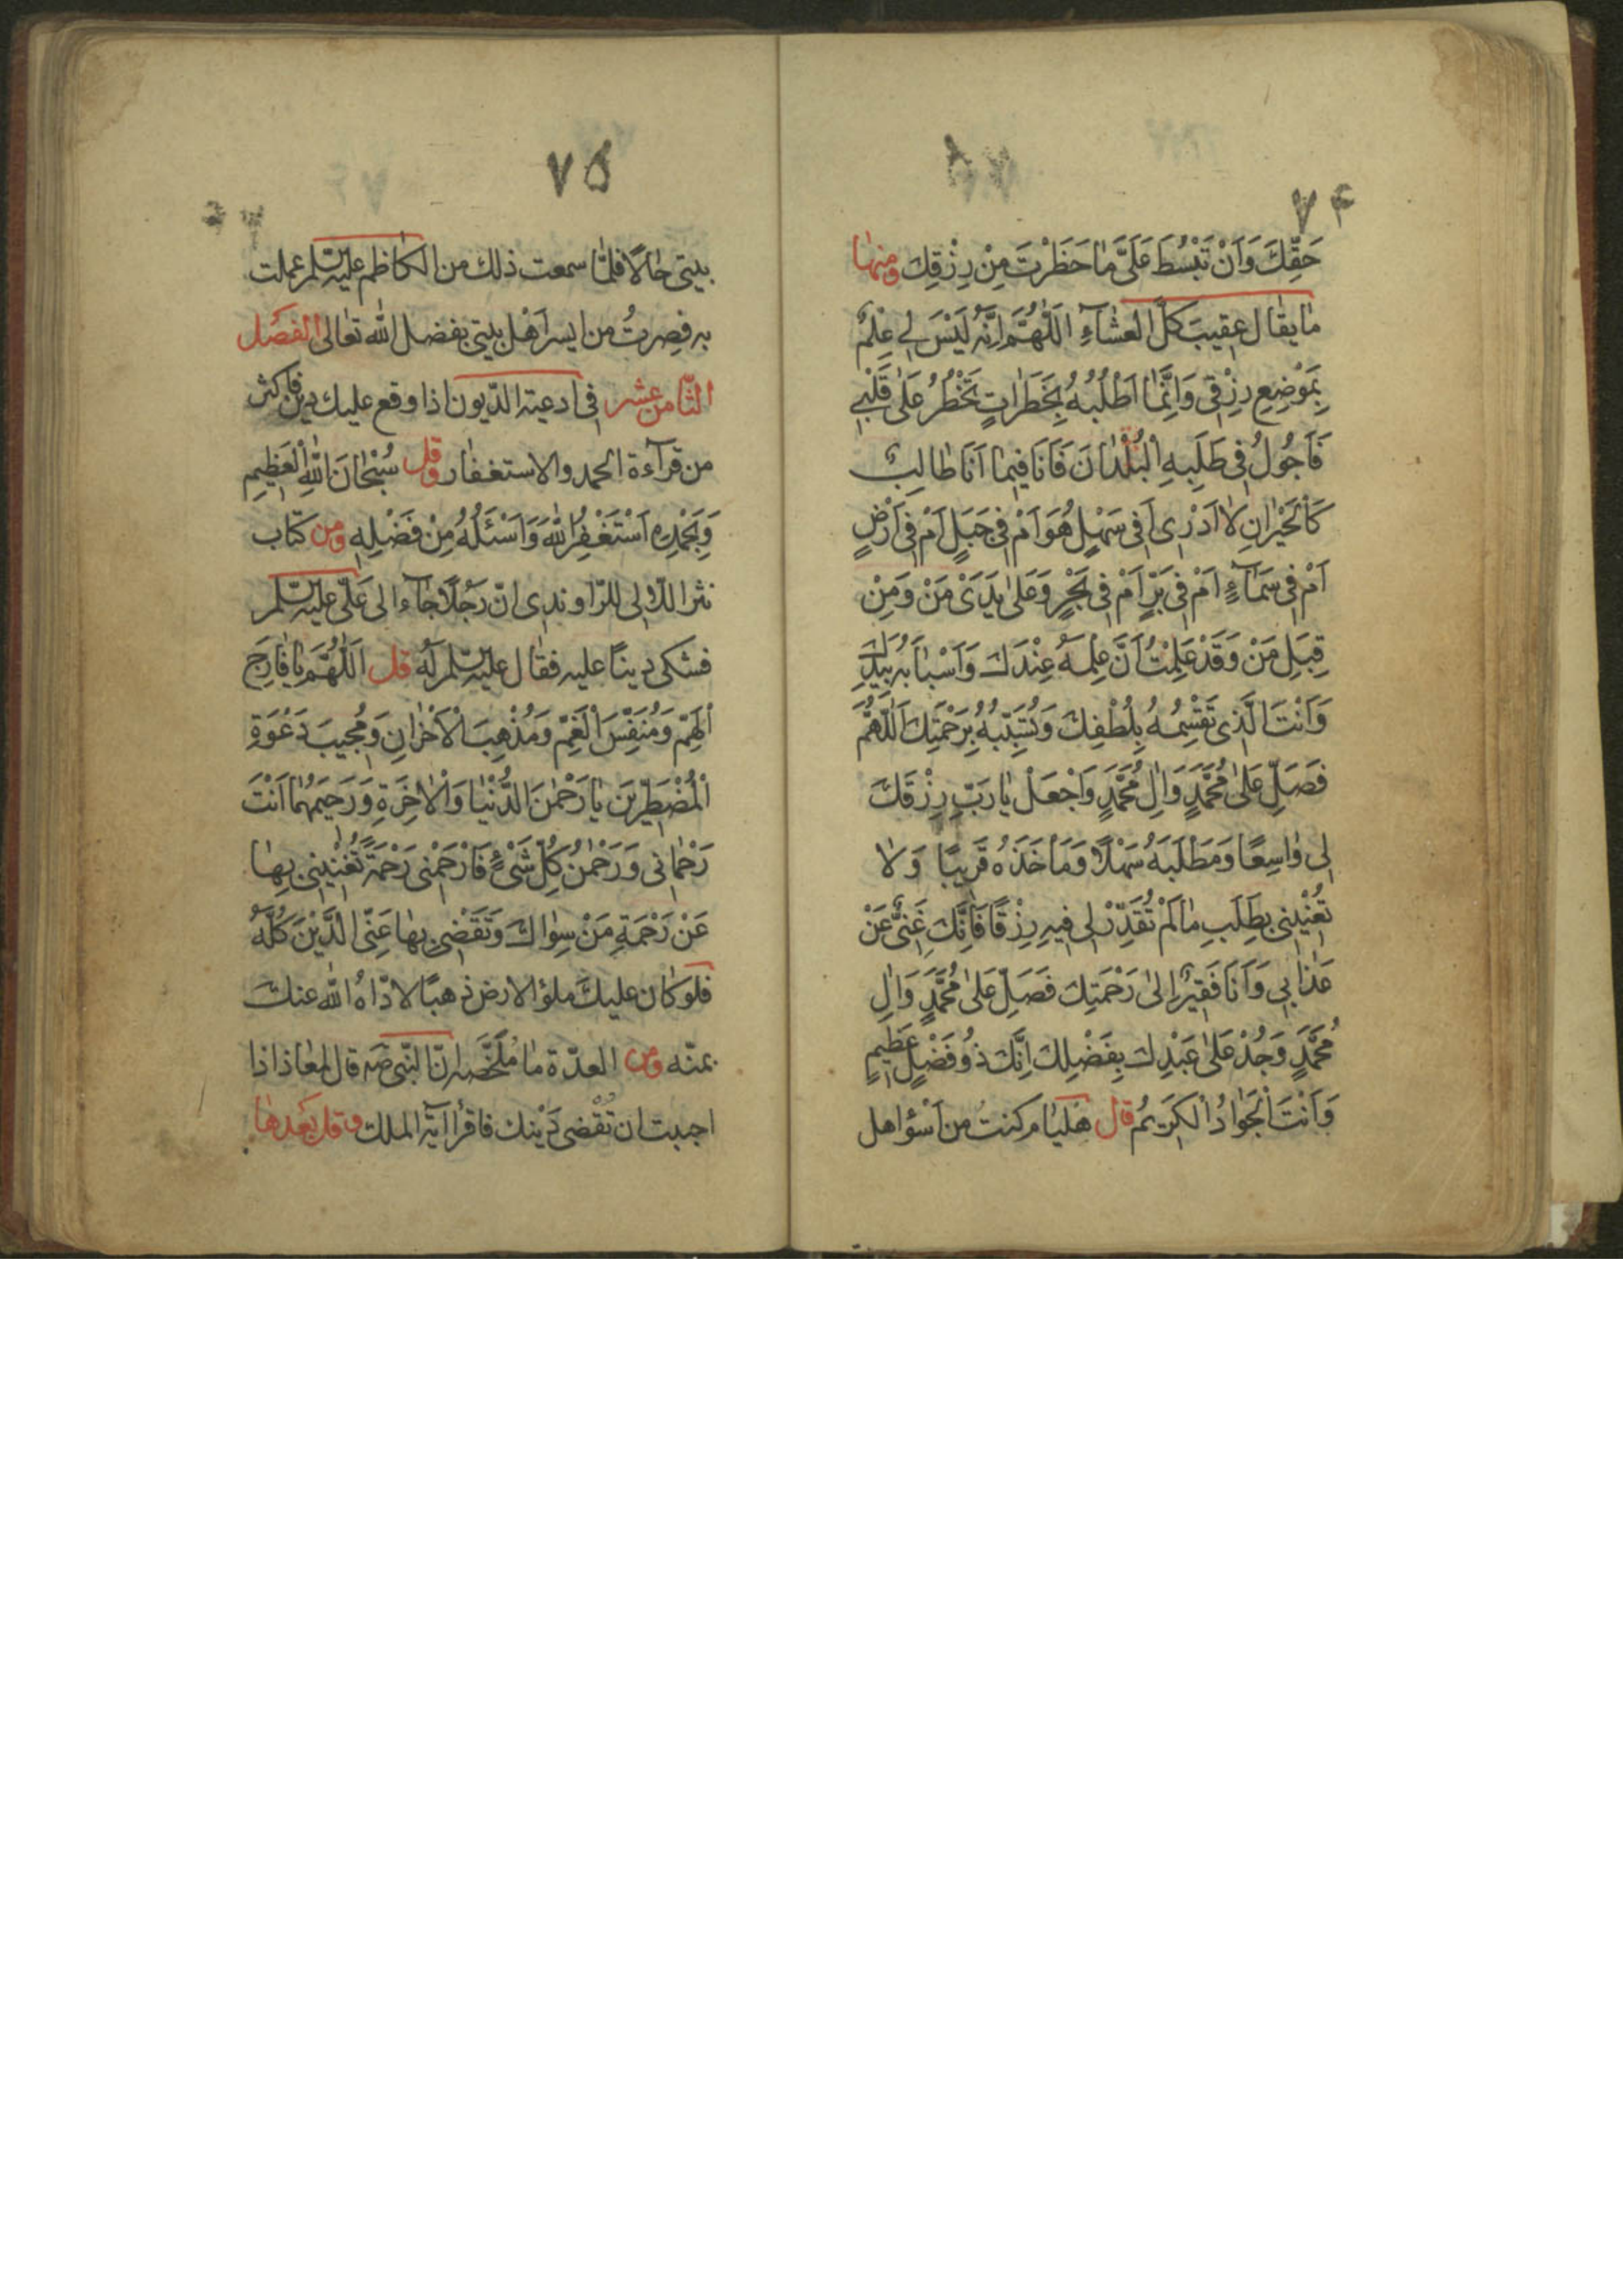 ٧۴
حَقِّكَ وَاَنْ تَبْسُطَ عَلَيَّ مٰا حَظَرْتَ مِنْ رِزْقِكَ ومنهٰا
مٰا يقٰال عقيبَ كلّ العشآءِ اَللّٰهُمَّ اِنَّهُ لَيْسَ لي عِلْمٌ
بِمَوْضِعِ رِزْقي وَاِنَّمٰا اَطْلُبُهُ بِخَطَرٰاتٍ تَخْطُرُ عَلٰى قَلْبي
فَاَجُولُ في طَلَبِهِ الْبُلْدٰانَ فَاَنَا فيمٰا اَنَا طٰالِبٌ
كَالْحَيْرٰانِ لٰا اَدْرٖى اَفي سَهْلٍ هُوَ اَمْ في جَبَلٍ اَمْ في اَرْضٍ
اَمْ في سَمٰآءٍ اَمْ في بَرٍّ اَمْ في بَحْرٍ وَعَلٰى يَدَىْ مَنْ وَمِنْ
قِبَلِ مَنْ وَقَدْ عَلِمْتُ اَنَّ عِلْمَهُ عِنْدَكَ وَاَسْبٰابَهُ بِيَدِكَ
وَاَنْتَ الَّذي تَقْسِمُهُ بِلُطْفِكَ وَتُسَبِّبُهُ بِرَحْمَتِكَ اَللّٰهُمَّ
فَصَلِّ عَلٰى مُحَمَّدٍ وَاٰلِ مُحَمَّدٍ وَاجْعَلْ يٰا رَبِّ رِزْقَكَ
لي وٰاسِعًا وَمَطْلَبَهُ سَهْلًا وَمَأخَذَهُ قَريبًا وَلٰا
تُعَنِّيني بِطَلَبِ مٰا لَمْ تُقَدِّرْ لي فيهِ رِزْقًا فَاِنَّكَ غَنِيٌّ عَنْ
عَذٰابي وَاَنَا فَقيرٌ اِلٰى رَحْمَتِكَ فَصَلِّ عَلٰى مُحَمَّدٍ وَاٰلِ
مُحَمَّدٍ وَجُدْ عَلٰى عَبْدِكَ بِفَضْلِكَ اِنَّكَ ذُو فَضْلٍ عَظيمٍ
وَاَنْتَ الْجَوٰادُ الْكَريمُ قال هلقٰام كنتُ من اَسْؤاهل
٧۵
بيتي حٰالًا فلمّا سمعت ذلك من الكٰاظم عليه السّلم عملت
به فصِرتُ من ايسر اَهْل بيتي بفضل اللّٰه تعٰالى الفصَل
الثّامن عشر في ادعية الدّيون اذا وقع عليك دين فاكثر
من قرآءة الحمد والاستغفٰار وقل سُبْحٰانَ اللّٰهِ الْعَظيمِ
وَبِحَمْدِهِ اَسْتَغْفِرُ اللّٰهَ وَاَسْئَلُهُ مِنْ فَضْلِهِ ومن كتٰاب
نثر اللّٰالي للرّاوندي انّ رَجُلًا جٰاء الى عَليّ عليه السّلم
فشكى دينًا عليه فقٰال عليه السّلم لَهُ قل اَللّٰهُمَّ يٰا فٰارِجَ
الْهَمِّ وَمُنَفِّسَ الْغَمِّ وَمُذْهِبَ الْاَحْزٰانِ وَمُجيبَ دَعْوَةِ
الْمُضْطَرّينَ يٰا رَحْمٰنَ الدُّنْيٰا وَالْاٰخِرَةِ وَرَحيمَهُمٰا اَنْتَ
رَحْمٰاني وَرَحْمٰنُ كُلِّ شَيْءٍ فَارْحَمْني رَحْمَةً تُغْنيني بِهٰا
عَنْ رَحْمَةِ مَنْ سِوٰاكَ وَتَقْضي بِهٰا عَنِّي الدَّيْنَ كُلَّهُ
فلَو كٰان عليكَ ملؤ الارض ذهبًا لادّاهُ اللّٰه عنكَ
بمنّه ومن العدّة مٰا مُلَخَّصه انّ النّبي صَه قال لمعٰاذ اذا
احببت ان تُقْضى دَيْنك فاقرأ اٰيَة الملك وقل بَعْدهٰا